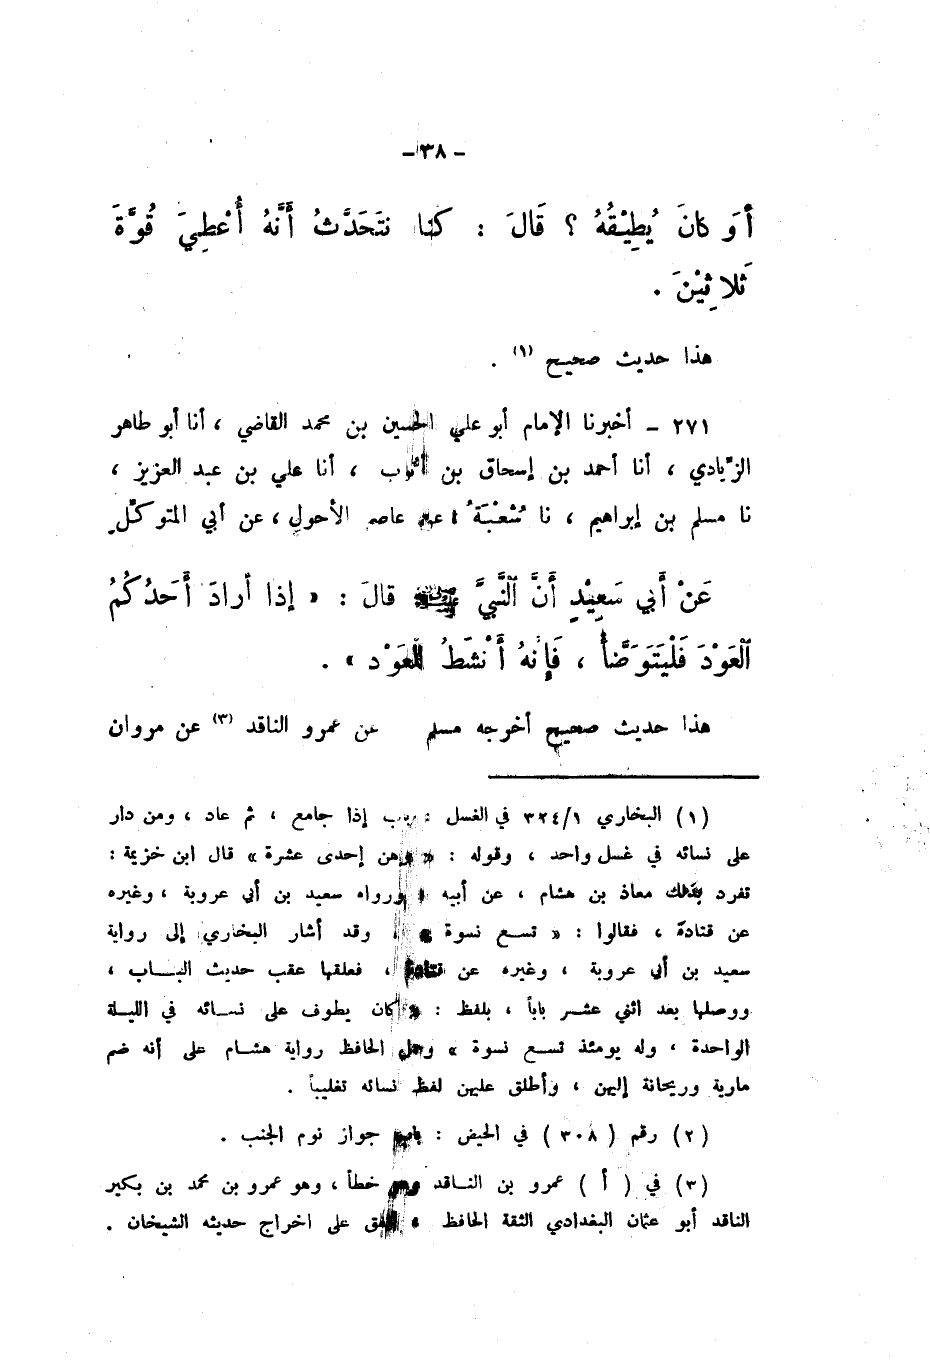 - ٣٨ -
أَوَ كانَ يُطِيْقُهُ ؟ قَالَ : كنا نتَحَدَّثُ أَنَّهُ أُعْطِيَ قُوَّةَ
ثَلاثِيْنَ .
هذا حديث صحيح (١) .
٢٧١ - أخبرنا الإمام أبو علي الحسين بن محمد القاضي ، أنا أبو طاهر
الزّيادي ، أنا أحمد بن إسحاق بن أيوب ، أنا علي بن عبد العزيز ،
نا مسلم بن إبراهيم ، نا شُعْبَةُ ، عن عاصم الأحولِ ، عن أبي المتوكّلِ
عَنْ أَبي سَعِيْدٍ أَنَّ ٱلنَّبيَّ ﷺ قالَ : « إذا أرادَ أَحَدُكُمُ
ٱلعَوْدَ فَلْيَتَوَضَّأْ ، فَإِنهُ أَنْشَطُ لِلْعَوْد » .
هذا حديث صحيح أخرجه مسلم عن عمرو الناقد (٣) عن مروان
(١) البخاري ٣٢٤/١ في الغسل : باب إذا جامع ، ثم عاد ، ومن دار
على نسائه في غسل واحد ، وقوله : « وهن إحدى عشرة » قال ابن خزيمة :
تفرد بذلك معاذ بن هشام ، عن أبيه ، ورواه سعيد بن أبي عروبة ، وغيره
عن قتادة ، فقالوا : « تسع نسوة » ، وقد أشار البخاري إلى رواية
سعيد بن أبي عروبة ، وغيره عن قتادة ، فعلقها عقب حديث البـاب ،
ووصلها بعد اثني عشر باباً ، بلفظ : « كان يطوف على نسائه في الليلة
الواحدة ، وله يومئذ تسع نسوة » وحمل الحافظ رواية هشام على أنه ضم
مارية وريحانة إليهن ، وأطلق عليهن لفظ نسائه تغليباً .
(٢) رقم ( ٣٠٨ ) في الحيض : باب جواز نوم الجنب .
(٣) في ( أ ) عمرو بن الناقد وهو خطأ ، وهو عمرو بن محمد بن بكير
الناقد أبو عثمان البغدادي الثقة الحافظ ، اتفق على اخراج حديثه الشيخان .